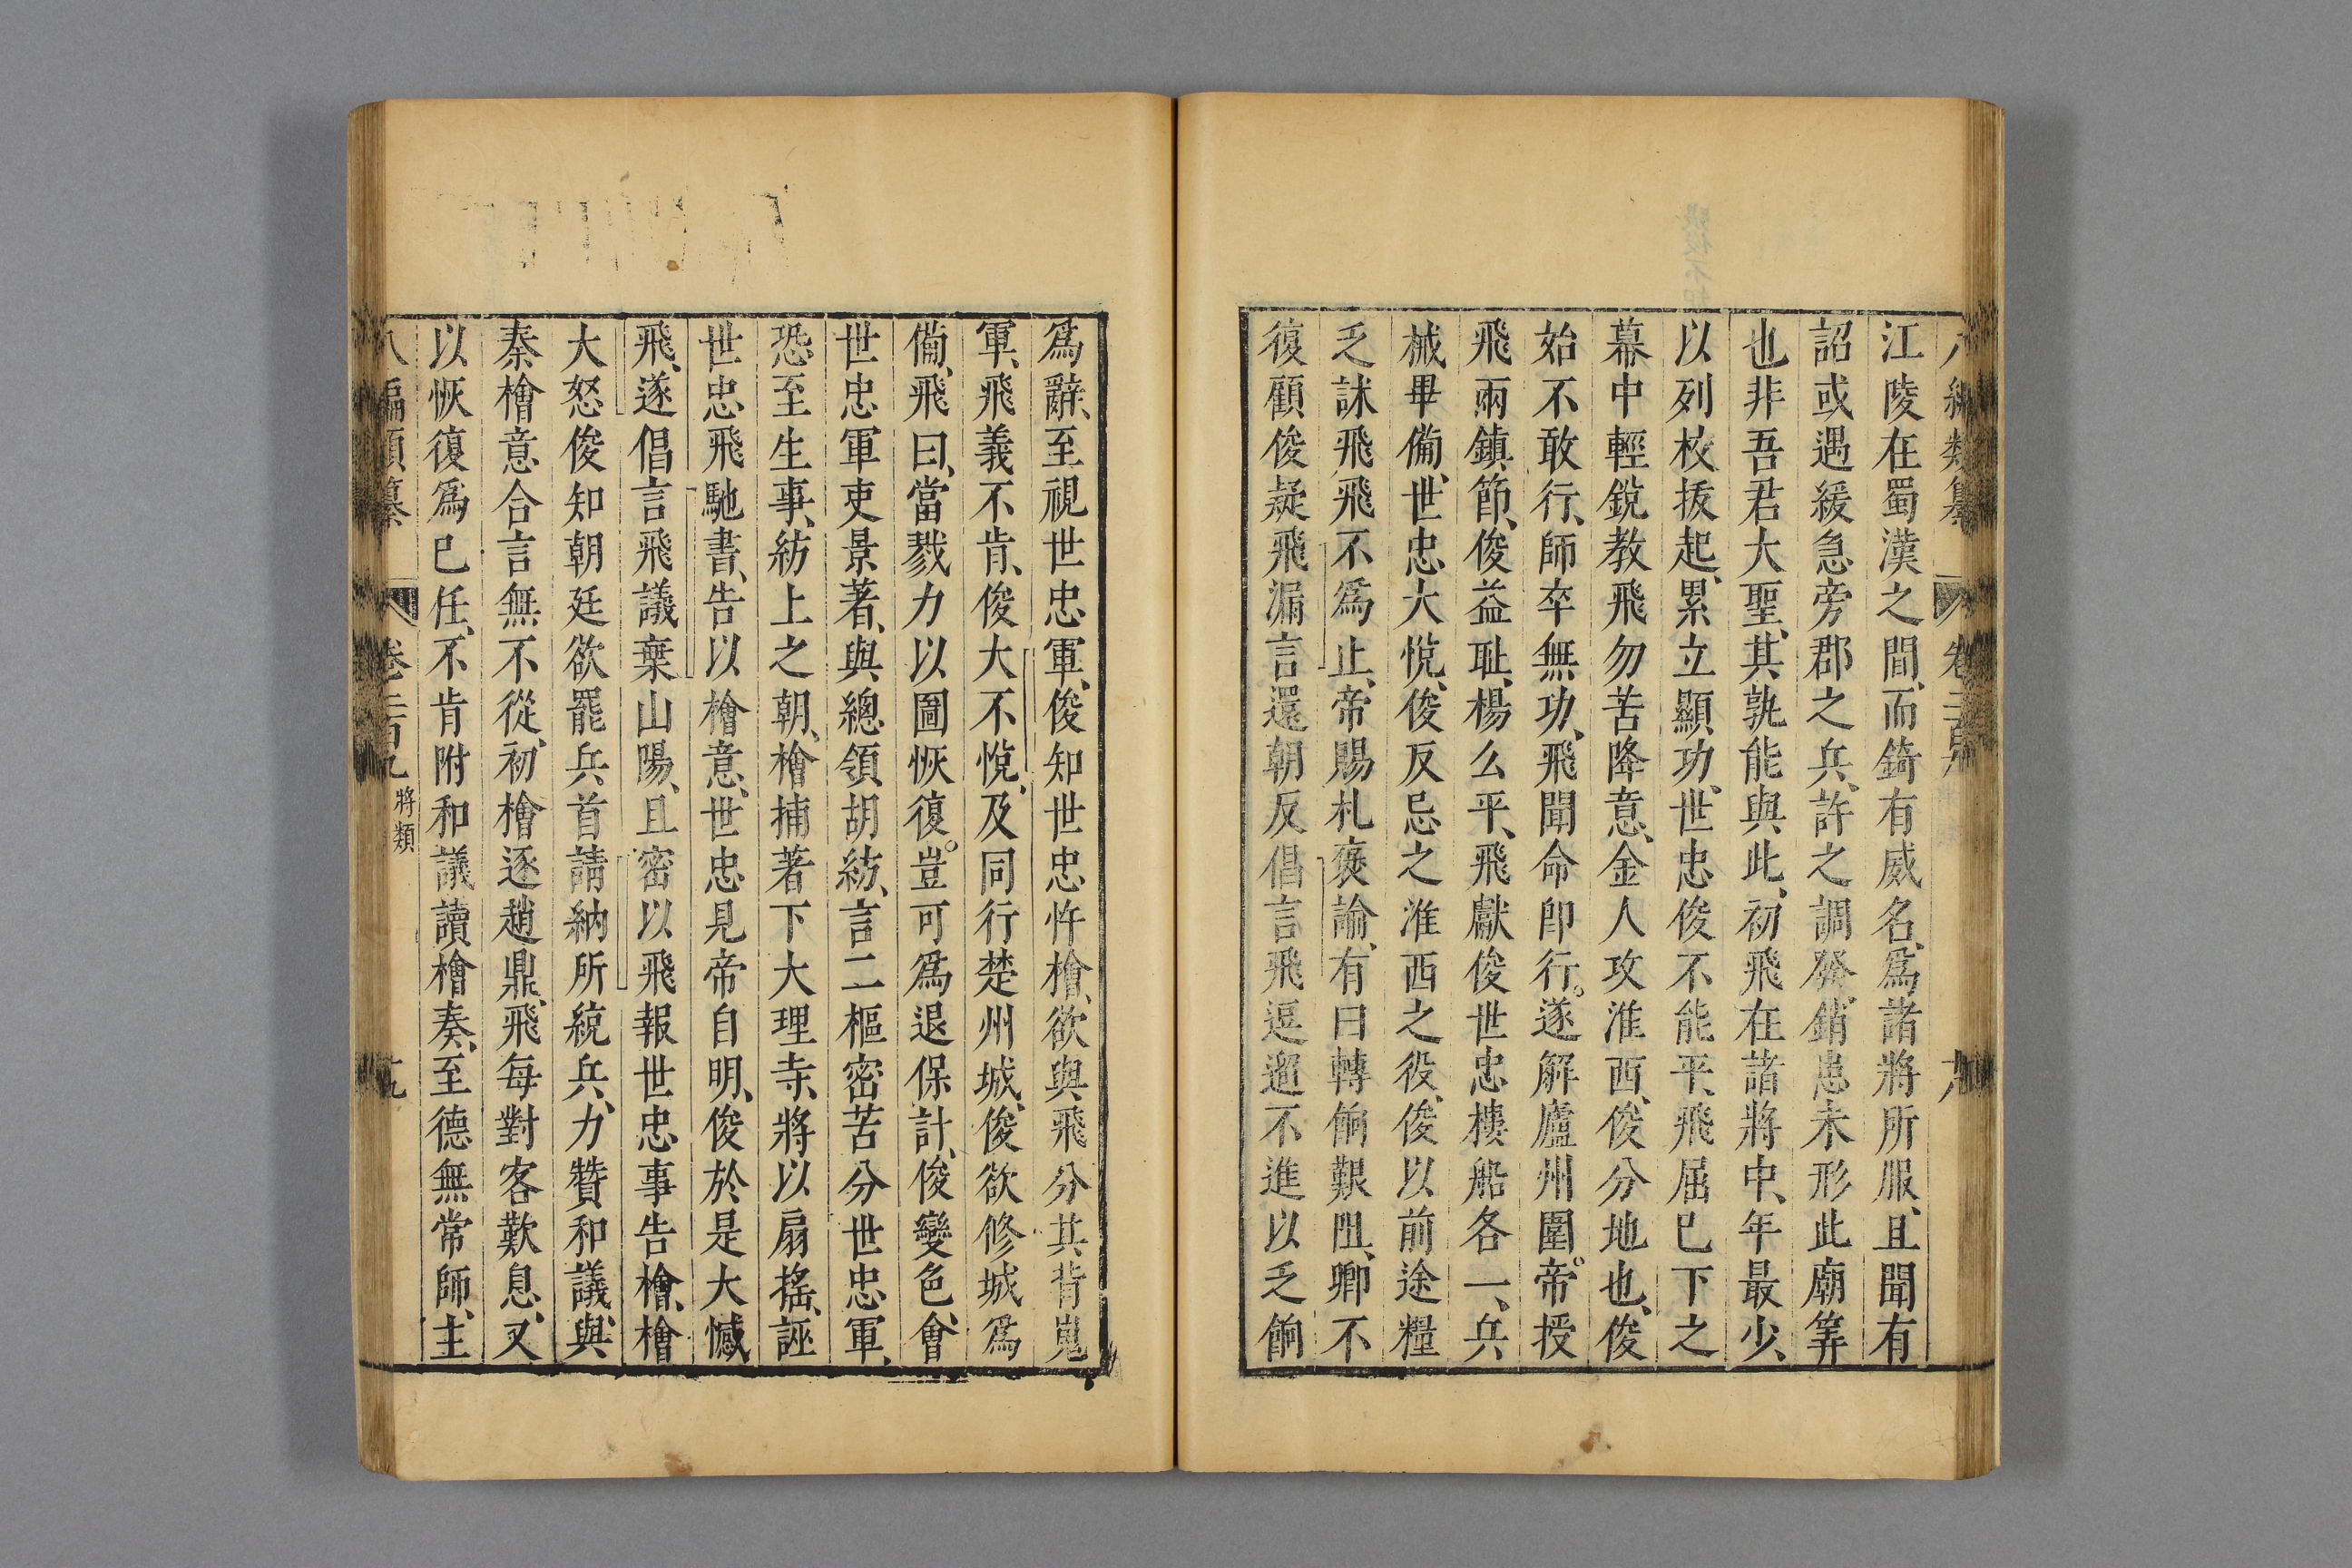 江陵在蜀漢之間、而錡有威名、爲諸將所服、且聞有
詔或遇緩急旁郡之兵、許之調發、銷患未形此廟筭
也非吾君大聖、其孰能與此、初飛在諸將中、年最少、
以列校拔起、累立顯功、世忠俊不能平、飛屈已下之
幕中輕銳教飛勿苦降意、金人攻淮西、俊分地也、俊
始不敢行、師卒無功、飛聞命卽行。遂解廬州圍。帝授
飛兩鎮節、俊益耻、楊么平、飛獻俊世忠樓船各一、兵
械畢備、世忠大悅、俊反忌之淮西之役、俊以前途糧
乏訹飛飛不爲止、帝賜札褒諭、有曰轉餉艱阻、卿不
復顧俊疑飛漏言還朝反倡言飛逗遛不進以乏餉
爲辭、至視世忠軍、俊知世忠忤檜、欲與飛分其背嵬
軍、飛義不肯、俊大不悅、及同行楚州城、俊欲修城爲
備、飛曰、當戮力以圖恢復。豈可爲退保計、俊變色、會
世忠軍吏景著、與總領胡紡、言二樞密苦分世忠軍、
恐至生事、紡上之朝、檜捕著下大理寺、將以扇搖、誣
世忠飛馳書、告以檜意、世忠見帝自明、俊於是大憾
飛、遂倡言飛議棄山陽、且密以飛報世忠事告檜、檜
大怒俊知朝廷欲罷兵首請納所統兵、力贊和議、與
秦檜意合言無不從、初檜逐趙鼎、飛每對客歎息、又
以恢復爲已任、不肯附和議讀檜奏、至德無常師、主
八編類纂　卷二百九　將類　十九